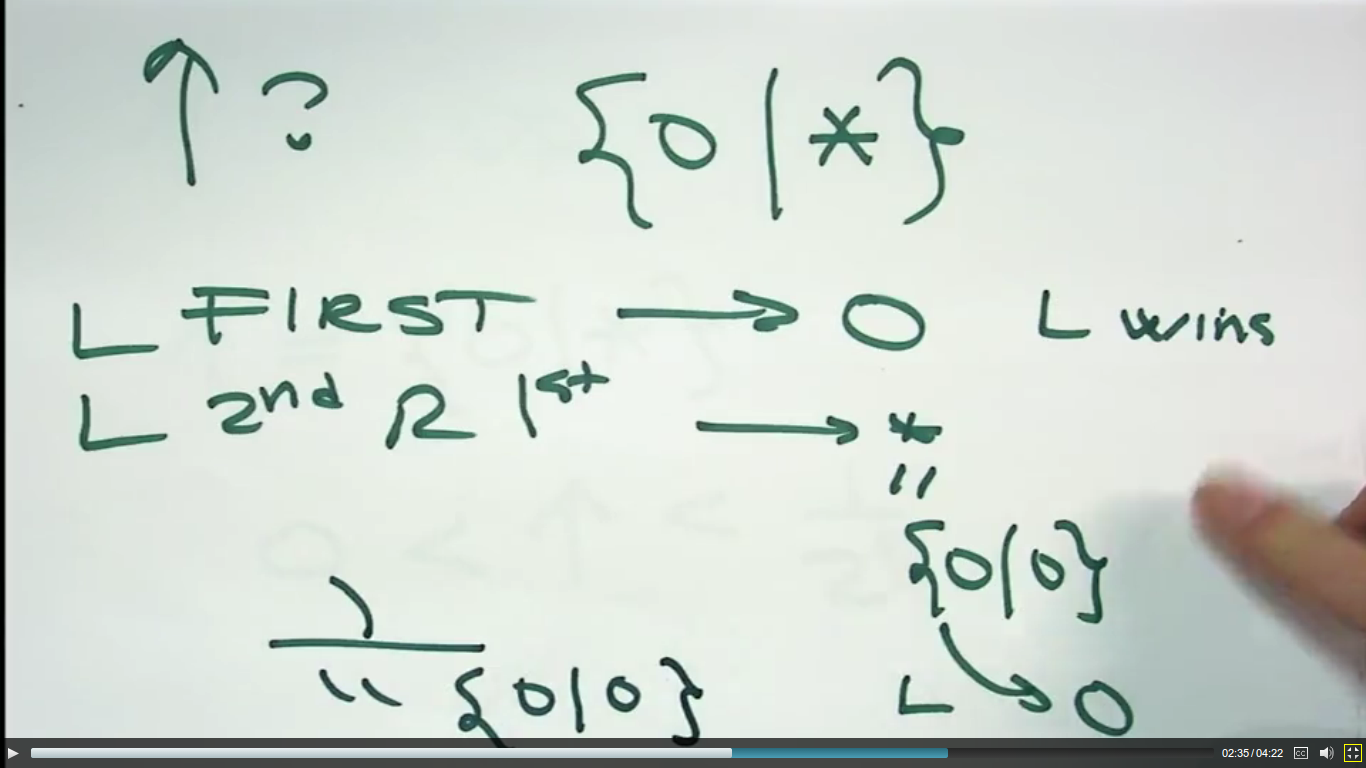 ↑ ? {0|*}
L FIRST → 0 L wins
L 2nd R 1st → *
=
{0|0}
= {0|0} L → 0
02:35/04:22
CC